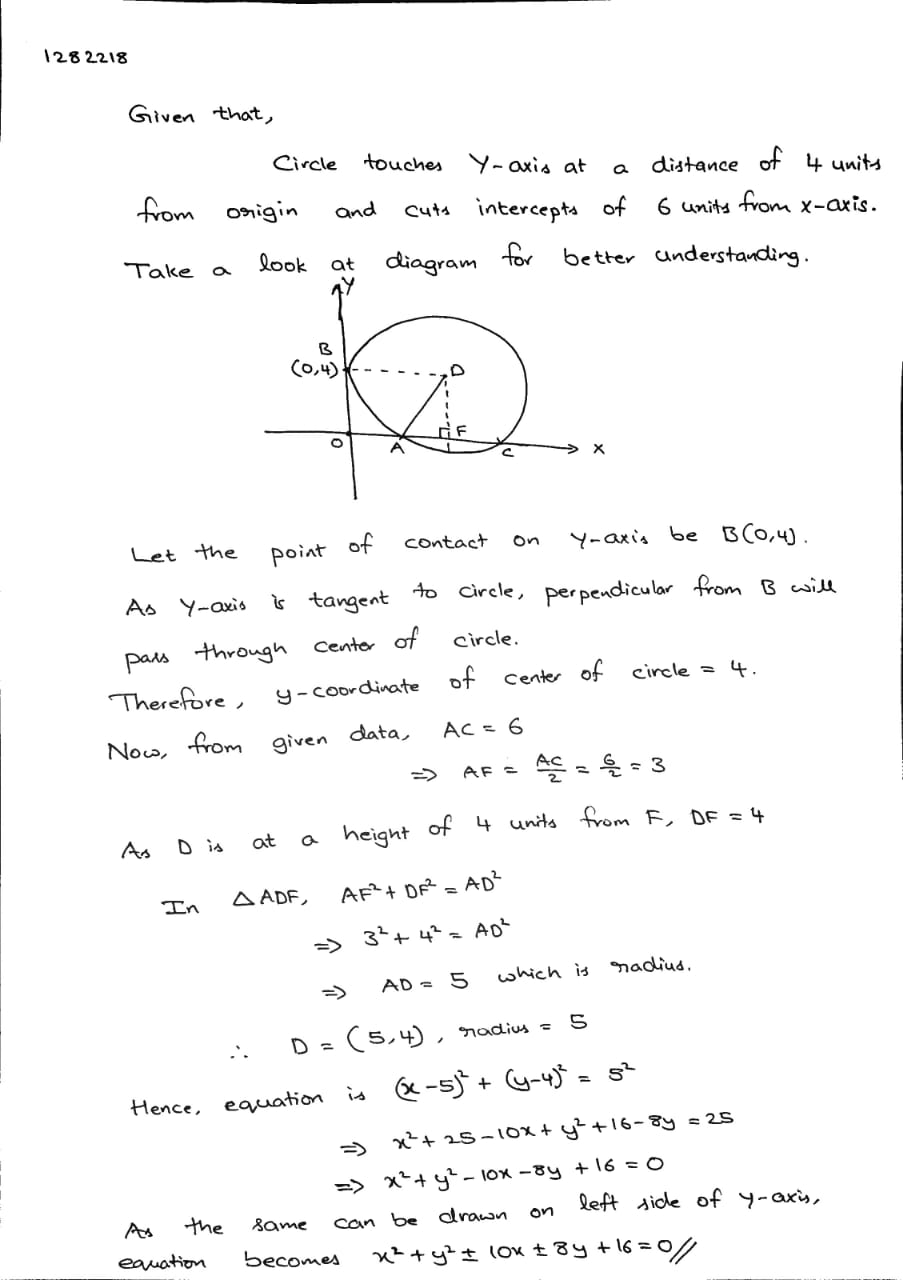 1282218
Given that,
Circle touches Y-axis at a distance of 4 units
from origin and cuts intercepts of 6 units from x-axis.
Take a look at diagram for better understanding.
Y
B
(0,4)
D
F
O
A
C
X
Let the point of contact on Y-axis be B(0,4).
As Y-axis is tangent to circle, perpendicular from B will
pass through center of circle.
Therefore, y-coordinate of center of circle = 4.
Now, from given data, AC = 6
⇒ AF = AC/2 = 6/2 = 3
As D is at a height of 4 units from F, DF = 4
In △ADF, AF² + DF² = AD²
⇒ 3² + 4² = AD²
⇒ AD = 5 which is radius.
∴ D = (5,4), radius = 5
Hence, equation is (x-5)² + (y-4)² = 5²
⇒ x² + 25 - 10x + y² + 16 - 8y = 25
⇒ x² + y² - 10x - 8y + 16 = 0
As the same can be drawn on left side of y-axis,
equation becomes x² + y² ± 10x ± 8y + 16 = 0//